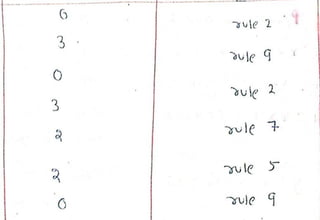 0 rule 2
3 rule 9
0 rule 2
3 rule 7
2 rule 5
2 rule 9
0